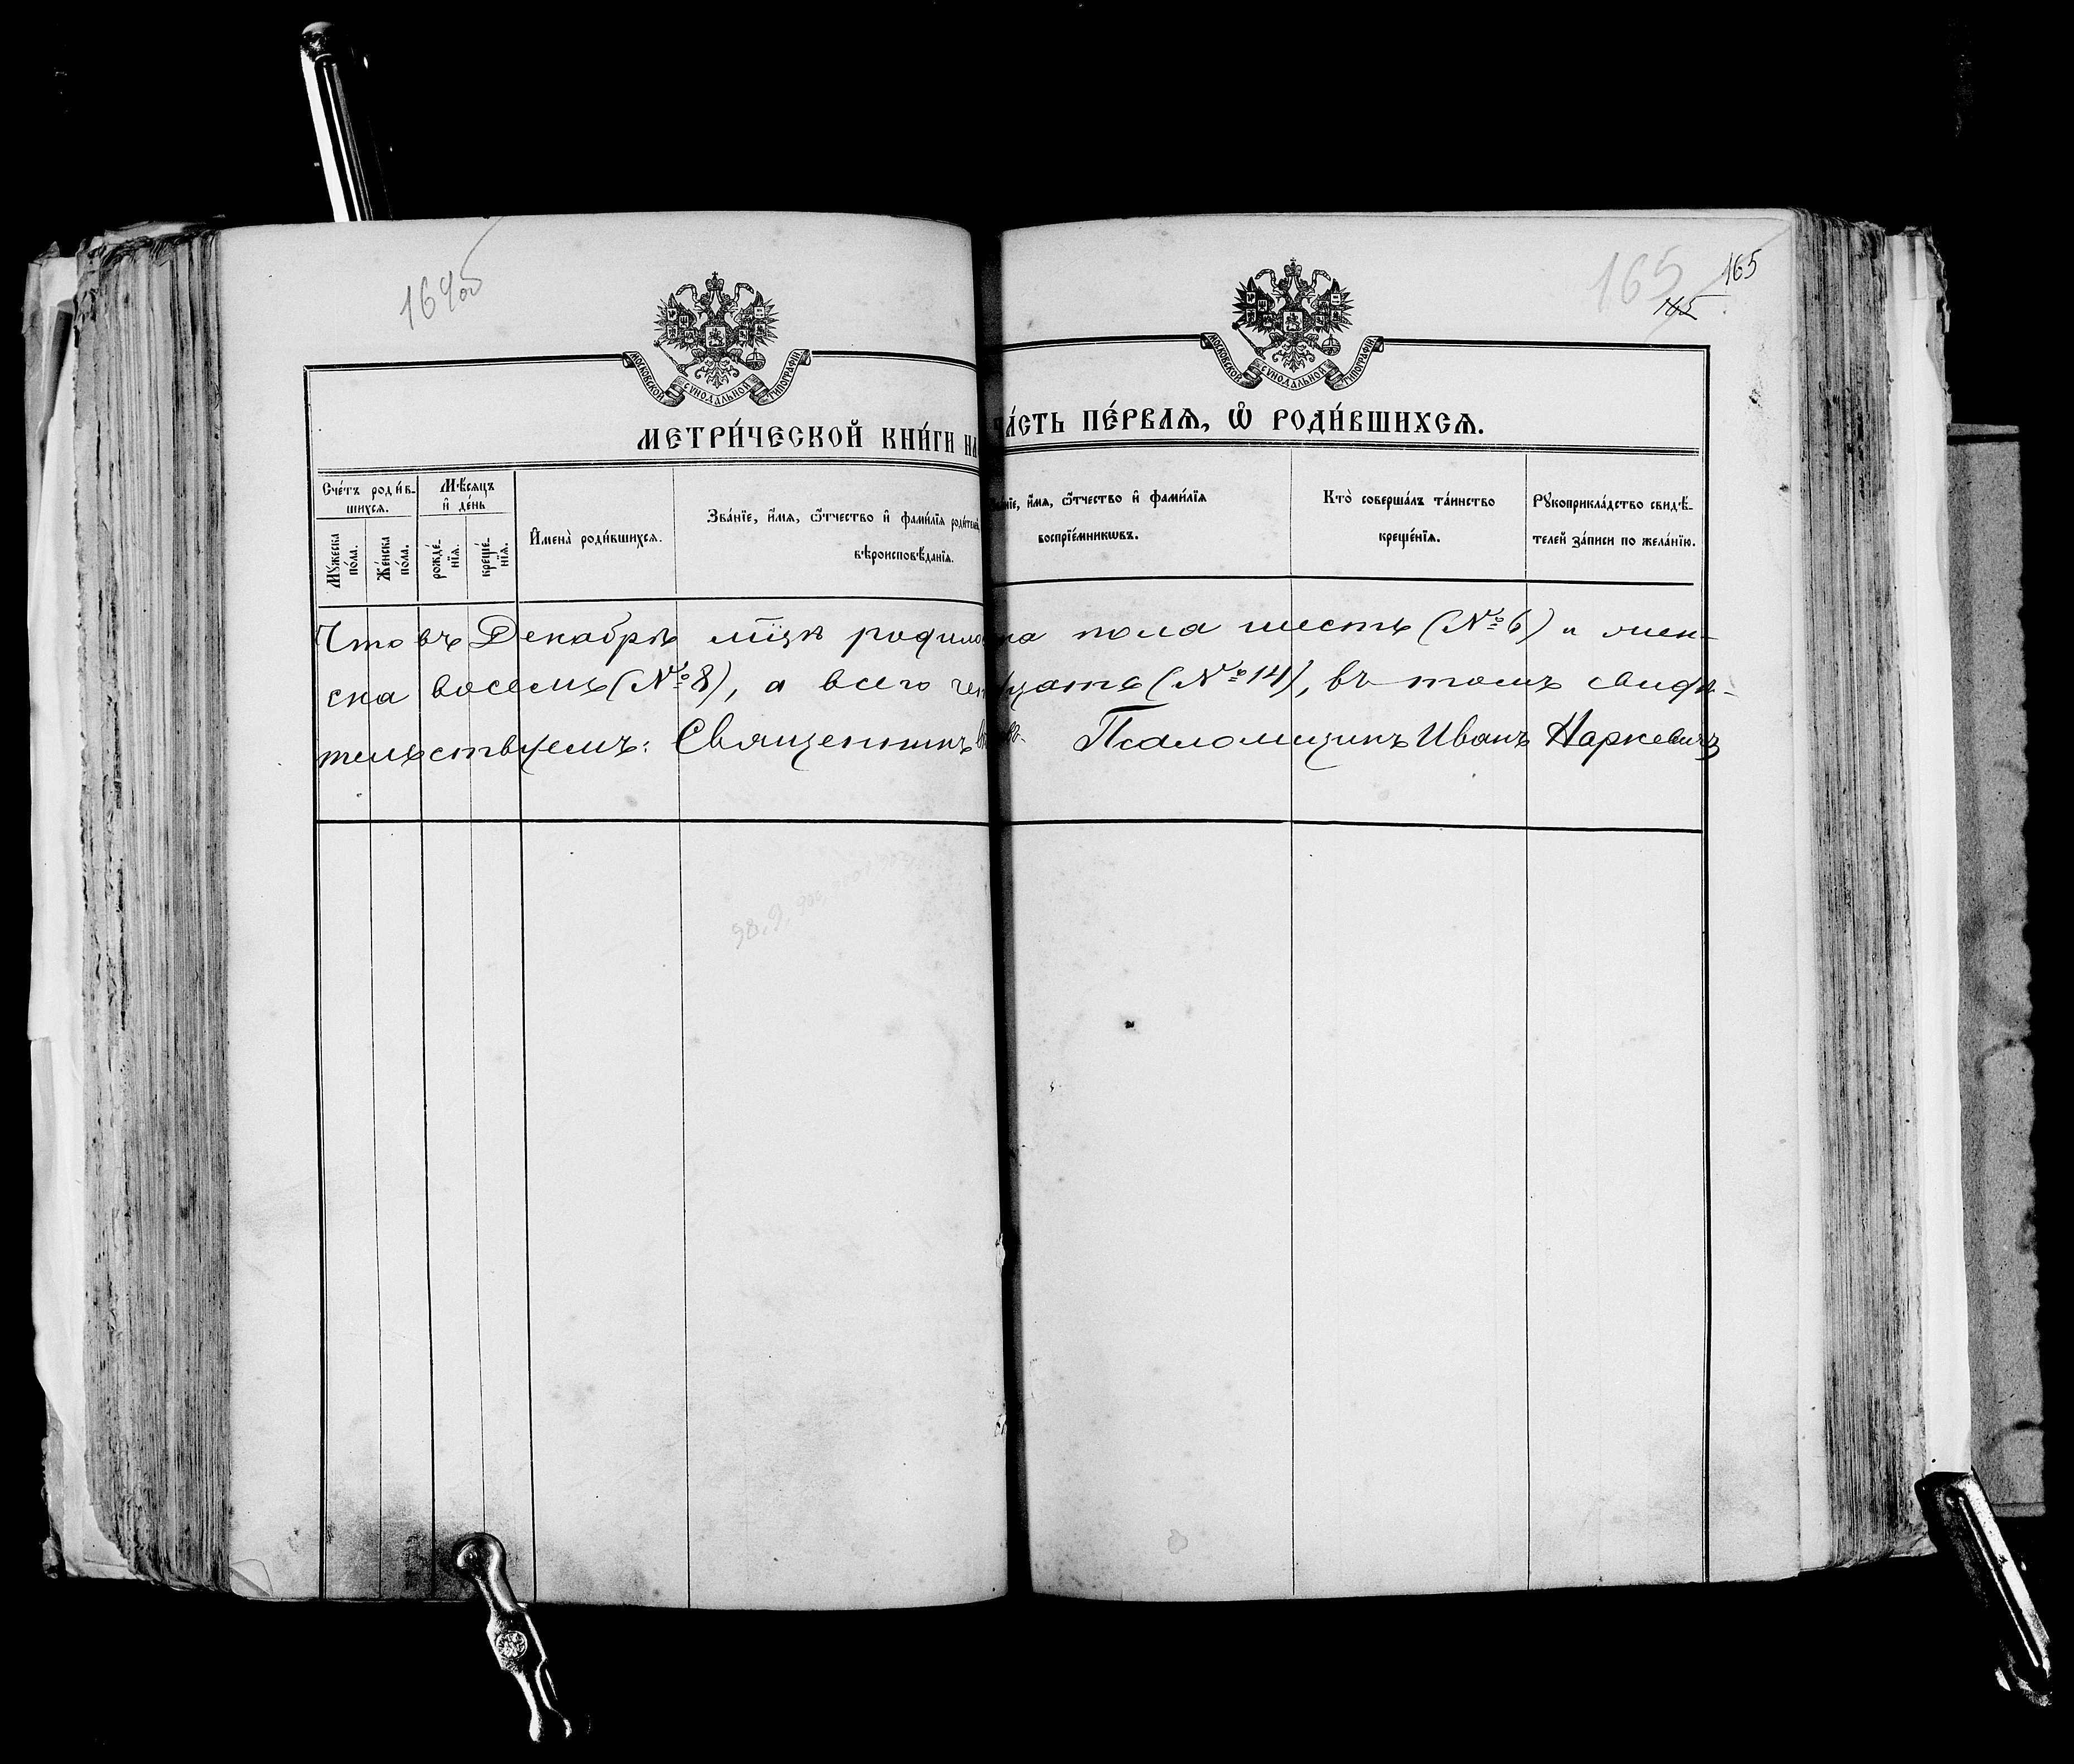 164об
165
165
165
МОСКОВСКОЙ СѴНОДАЛЬНОЙ ТИПОГРАФІИ
МОСКОВСКОЙ СѴНОДАЛЬНОЙ ТИПОГРАФІИ
МЕТРИ́ЧЕСКОЙ КНИ́ГИ НА
ЧА́СТЬ ПЕ́РВАЯ, Ѽ РОДИ́ВШИХСЯ.
Сче́тъ роди́в-
шихся.
Мꙋжеска по́ла.
Же́нска по́ла.
Мѣ́сяцъ и҆ де́нь
рожде́-
нїя.
креще́-
нїя.
И҆мена̀ роди́вшихся.
Зва́нїе, и҆́мя, ѻ҆́тчество и҆ фами́лїя роди́телей
вѣроисповѣ́данїя.
Зва́нїе, и҆́мя, ѻ҆́тчество и҆ фами́лїя
воспрїе́мникѡвъ.
Кто̀ соверша́лъ та́инство
креще́нїя.
Рꙋкоприкла́дство свидѣ́-
телей за́писи по жела́нїю.
Что въ Декабрѣ мѣсяцѣ родило на пола шесть (№ 6) и жен-
ска восемь (№ 8), а всего чет дцать (№ 14), въ томъ свидѣ-
тельствуемъ: Священникъ Псаломщикъ Иванъ Наркевичъ